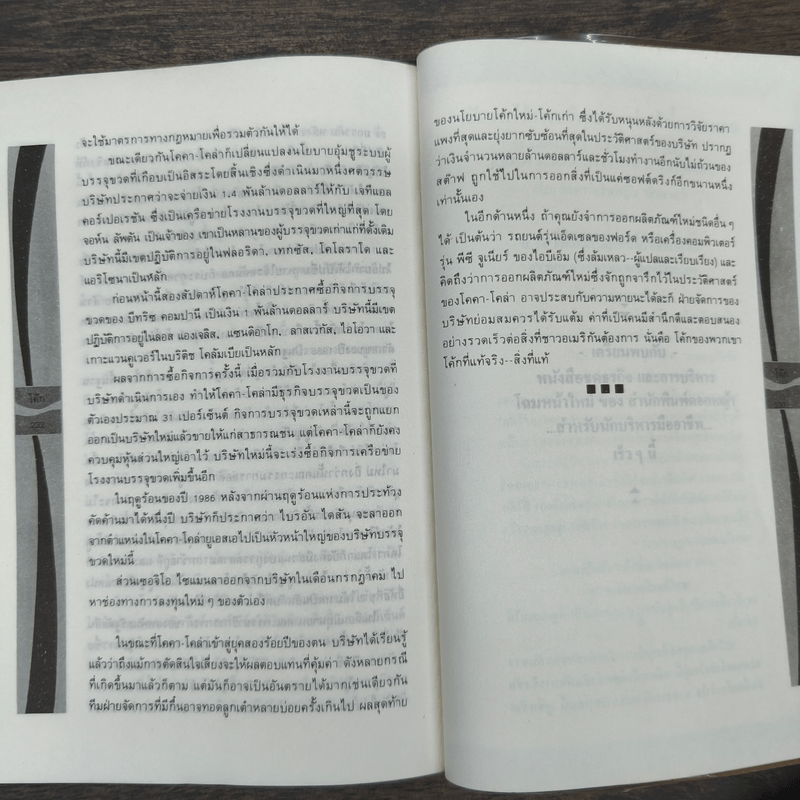 จะใช้มาตรการทางกฎหมายเพื่อรวมตัวกันให้ได้
ขณะเดียวกันโคคา-โคล่าก็เปลี่ยนแปลงนโยบายอุ้มชูระบบผู้
บรรจุขวดที่เกือบเป็นอิสระโดยสิ้นเชิงซึ่งดำเนินมาหนึ่งศตวรรษ
บริษัทประกาศว่าจะจ่ายเงิน 1.4 พันล้านดอลลาร์ให้กับ เจทีแอล
คอร์เปอเรชัน ซึ่งเป็นเครือข่ายโรงงานบรรจุขวดที่ใหญ่ที่สุด โดย
จอห์น ลัพตัน เป็นเจ้าของ เขาเป็นหลานของผู้บรรจุขวดเก่าแก่ที่ดั้งเดิม
บริษัทนี้มีเขตปฏิบัติการอยู่ในฟลอริดา, เทกซัส, โคโลราโด และ
แอริโซนาเป็นหลัก
ก่อนหน้านี้สองสัปดาห์โคคา-โคล่าประกาศซื้อกิจการบรรจุ
ขวดของ บีทริซ คอมปานี เป็นเงิน 1 พันล้านดอลลาร์ บริษัทนี้มีเขต
ปฏิบัติการอยู่ในลอส แองเจลิส, แซนดิอาโก, ลาสเวกัส, ไอโอวา และ
เกาะแวนคูเวอร์ในบริติช โคลัมเบียเป็นหลัก
ผลจากการซื้อกิจการครั้งนี้ เมื่อรวมกับโรงงานบรรจุขวดที่
บริษัทดำเนินการเอง ทำให้โคคา-โคล่ามีธุรกิจบรรจุขวดเป็นของ
ตัวเองประมาณ 31 เปอร์เซ็นต์ กิจการบรรจุขวดเหล่านี้จะถูกแยก
ออกเป็นบริษัทใหม่แล้วขายให้แก่สาธารณชน แต่โคคา-โคล่าก็ยังคง
ควบคุมหุ้นส่วนใหญ่เอาไว้ บริษัทใหม่นี้จะเร่งซื้อกิจการเครือข่าย
โรงงานบรรจุขวดเพิ่มขึ้นอีก
ในฤดูร้อนของปี 1986 หลังจากผ่านฤดูร้อนแห่งการประท้วง
คัดค้านมาได้หนึ่งปี บริษัทก็ประกาศว่า ไบรอัน ไดสัน จะลาออก
จากตำแหน่งในโคคา-โคล่ายูเอสเอไปเป็นหัวหน้าใหญ่ของบริษัทบรรจุ
ขวดใหม่นี้
ส่วนเซอจิโอ ไซแมนลาออกจากบริษัทในเดือนกรกฎาคม ไป
หาช่องทางการลงทุนใหม่ ๆ ของตัวเอง
ในขณะที่โคคา-โคล่าเข้าสู่ยุคสองร้อยปีของตน บริษัทได้เรียนรู้
แล้วว่าถึงแม้การตัดสินใจเสี่ยงจะให้ผลตอบแทนที่คุ้มค่า ดังหลายกรณี
ที่เกิดขึ้นมาแล้วก็ตาม แต่มันก็อาจเป็นอันตรายได้มากเช่นเดียวกัน
ทีมฝ่ายจัดการที่มีกึ๋นอาจทอดลูกเต๋าหลายบ่อยครั้งเกินไป ผลสุดท้าย
โค้ก
232
ของนโยบายโค้กใหม่-โค้กเก่า ซึ่งได้รับหนุนหลังด้วยการวิจัยราคา
แพงที่สุดและยุ่งยากซับซ้อนที่สุดในประวัติศาสตร์ของบริษัท ปรากฏ
ว่าเงินจำนวนหลายล้านดอลลาร์และชั่วโมงทำงานอีกนับไม่ถ้วนของ
สต๊าฟ ถูกใช้ไปในการออกสิ่งที่เป็นแค่ซอฟต์ดริงก์อีกขนานหนึ่ง
เท่านั้นเอง
ในอีกด้านหนึ่ง ถ้าคุณยังจำการออกผลิตภัณฑ์ใหม่ชนิดอื่น ๆ
ได้ เป็นต้นว่า รถยนต์รุ่นเอ็ดเซลของฟอร์ด หรือเครื่องคอมพิวเตอร์
รุ่น พีซี จูเนียร์ ของไอบีเอ็ม (ซึ่งล้มเหลว--ผู้แปลและเรียบเรียง) และ
คิดถึงว่าการออกผลิตภัณฑ์ใหม่ซึ่งจักถูกจารึกไว้ในประวัติศาสตร์
ของโคคา-โคล่า อาจประสบกับความหายนะได้ละก็ ฝ่ายจัดการของ
บริษัทย่อมสมควรได้รับแต้ม ค่าที่เป็นคนมีสำนึกดีและตอบสนอง
อย่างรวดเร็วต่อสิ่งที่ชาวอเมริกันต้องการ นั่นคือ โค้กของพวกเขา
โค้กที่แท้จริง--สิ่งที่แท้